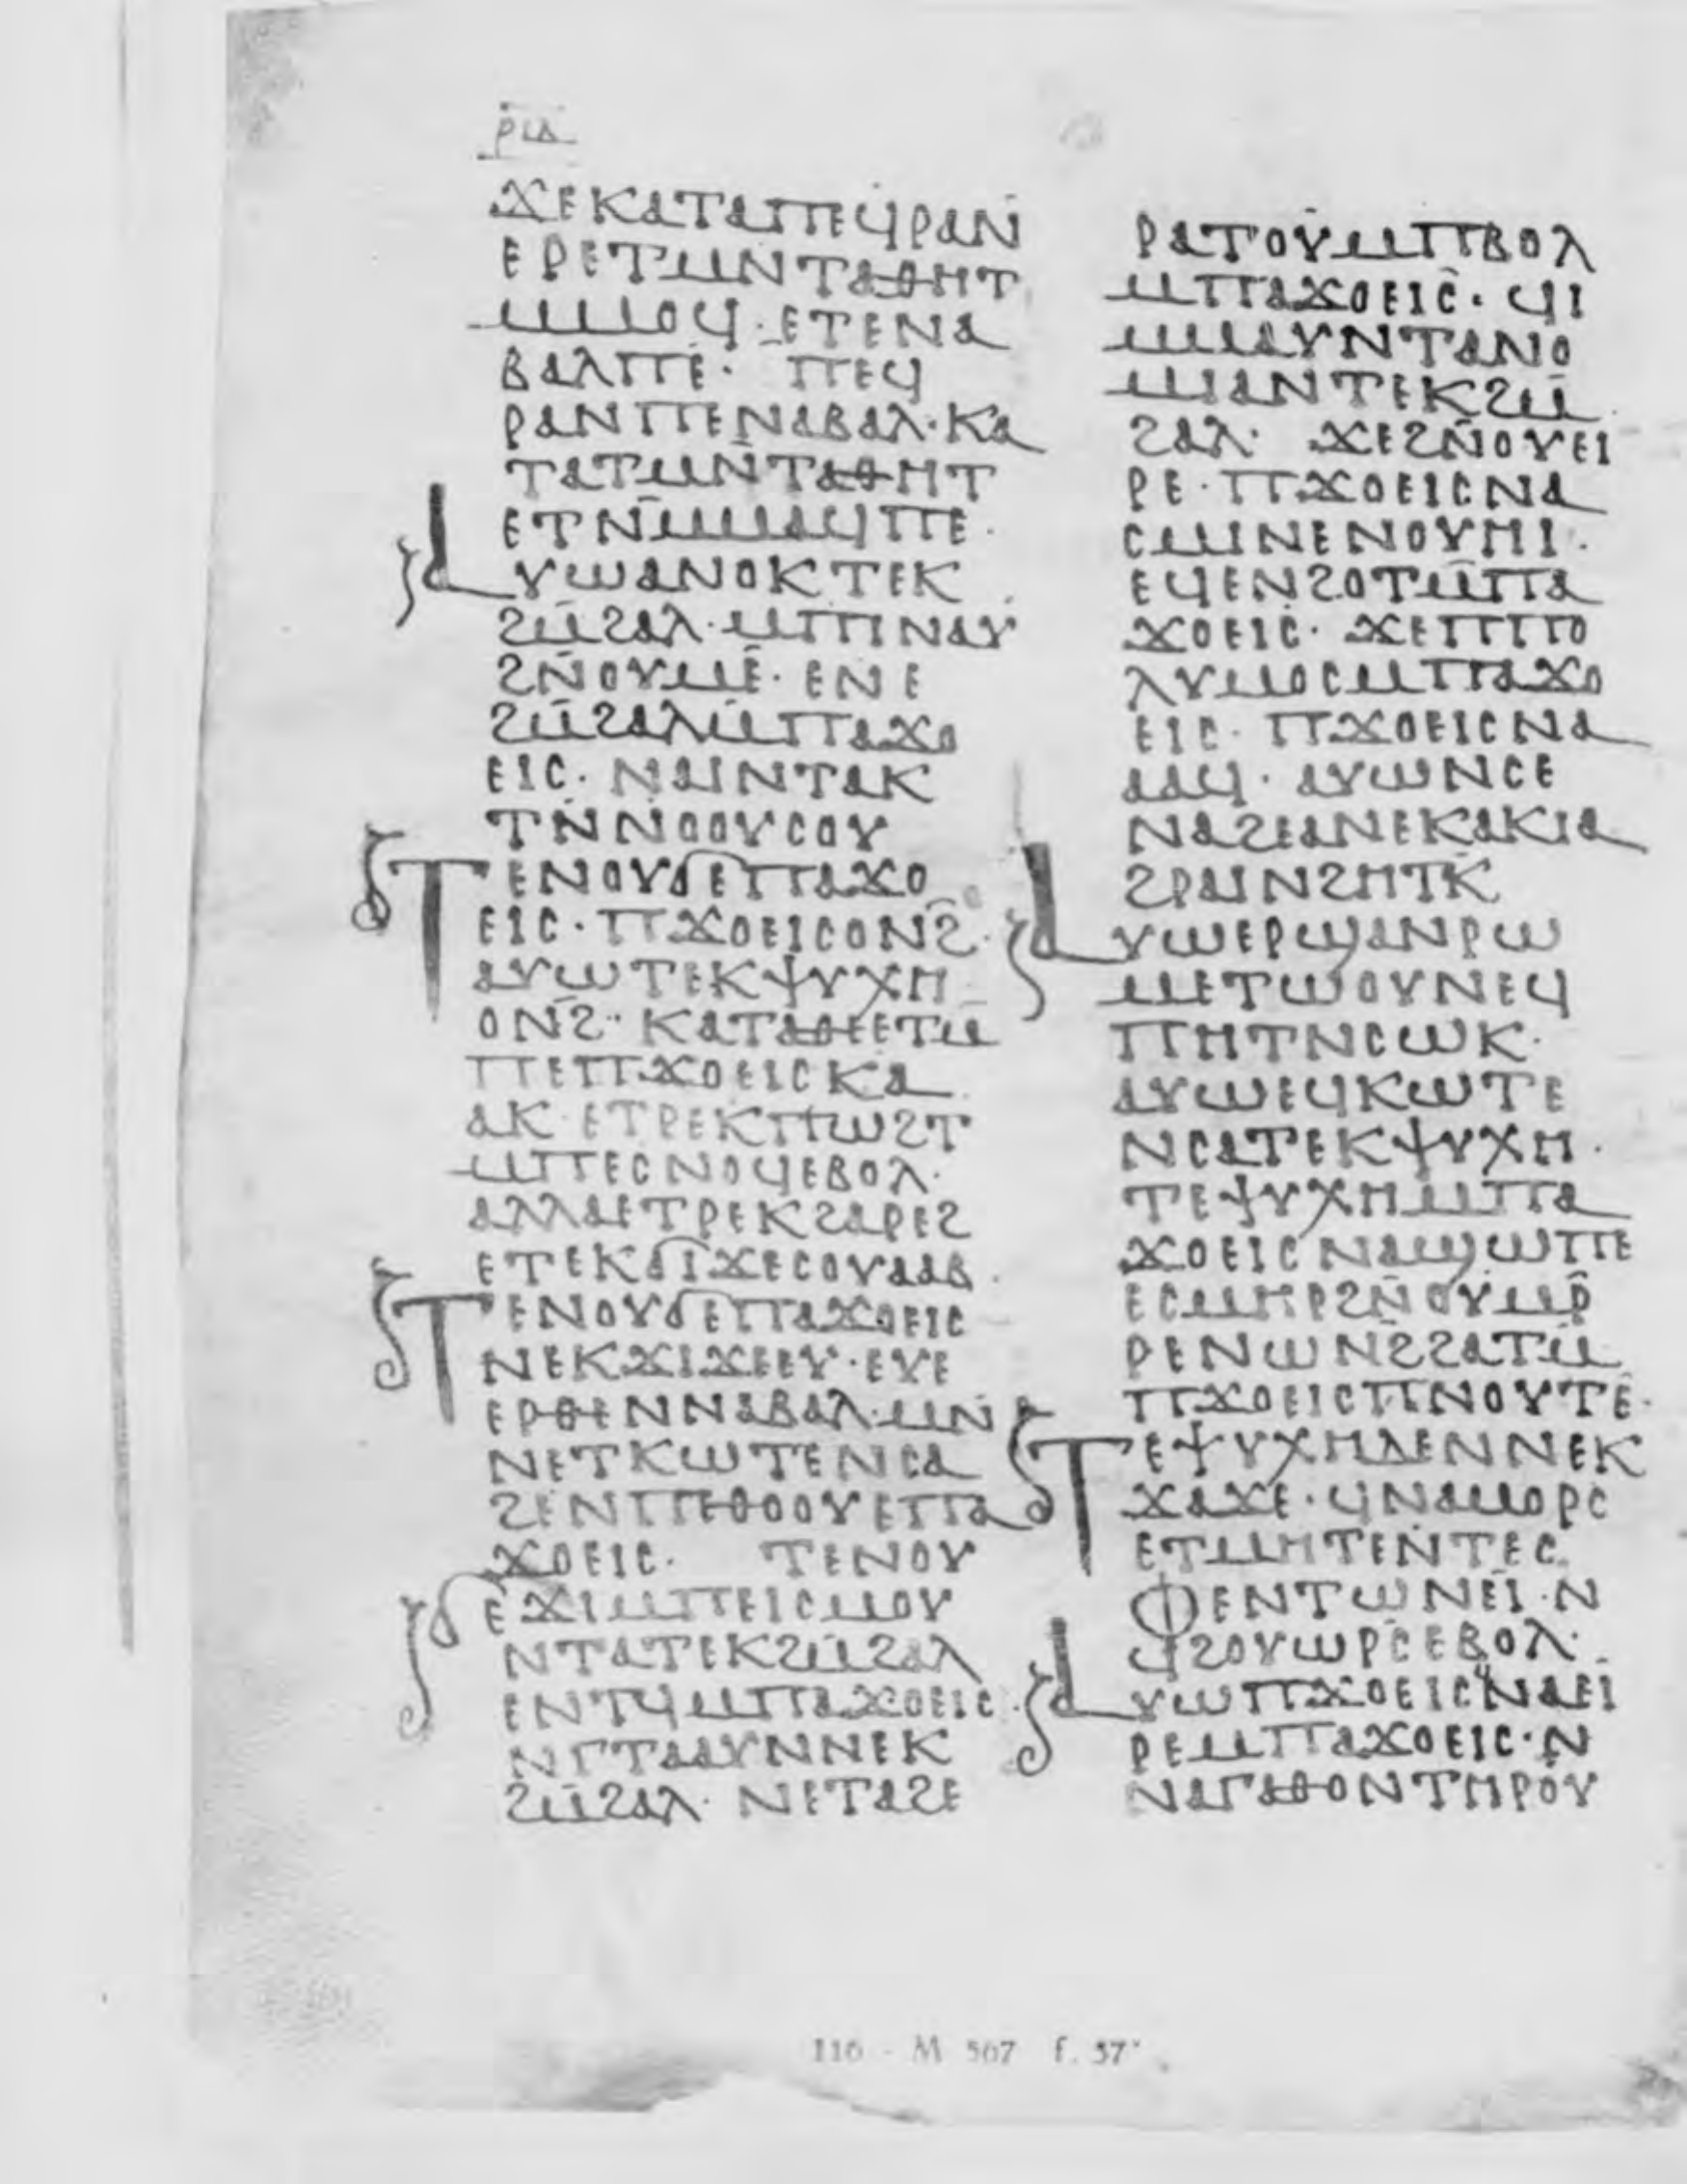 ⲣⲓⲇ
ϫⲉⲕⲁⲧⲁⲡⲉϥⲣⲁⲛ
ⲉⲣⲉⲧⲙⲛⲧⲁⲑⲏⲧ
ⲙⲙⲟϥ·ⲉⲧⲉⲛⲁ
ⲃⲁⲗⲡⲉ· ⲡⲉϥ
ⲣⲁⲛⲡⲉⲛⲁⲃⲁⲗ·ⲕⲁ
ⲧⲁⲧⲙⲛ̄ⲧⲁⲑⲏⲧ
ⲉⲧⲛ̄ⲙⲙⲁϥⲡⲉ·
ⲁⲩⲱⲁⲛⲟⲕⲧⲉⲕ
ϩⲙ̄ϩⲁⲗ·ⲙⲡⲓⲛⲁⲩ
ϩⲛ̄ⲟⲩⲙⲉ̄·ⲉⲛⲉ
ϩⲙ̄ϩⲁⲗⲙ̄ⲡⲁϫⲟ
ⲉⲓⲥ·ⲛⲁⲓⲛⲧⲁⲕ
ⲧⲛ̄ⲛⲟⲟⲩⲥⲟⲩ
ⲧⲉⲛⲟⲩϭⲉⲡⲁϫⲟ
ⲉⲓⲥ·ⲡϫⲟⲉⲓⲥⲟⲛϩ̄·
ⲁⲩⲱⲧⲉⲕⲯⲩⲭⲏ
ⲟⲛϩ·ⲕⲁⲧⲁⲑⲉⲉⲧⲙ
ⲡⲉⲡϫⲟⲉⲓⲥⲕⲁ
ⲁⲕ·ⲉⲧⲣⲉⲕⲡⲱϩⲧ
ⲙⲡⲉⲥⲛⲟϥⲉⲃⲟⲗ·
ⲁⲗⲗⲁⲉⲧⲣⲉⲕϩⲁⲣⲉϩ
ⲉⲧⲉⲕϭⲓϫⲉⲥⲟⲩⲁⲁⲃ·
ⲧⲉⲛⲟⲩϭⲉⲡⲁϫⲟⲉⲓⲥ
ⲛⲉⲕϫⲓϫⲉⲉⲩ·ⲉⲩⲉ
ⲉⲣⲑⲉⲛⲛⲁⲃⲁⲗ·ⲙⲛ
ⲛⲉⲧⲕⲱⲧⲉⲛⲥⲁ
ϩⲉⲛⲡⲉⲑⲟⲟⲩⲉⲡⲁ
ϫⲟⲉⲓⲥ· ⲧⲉⲛⲟⲩ
ϭⲉϫⲓⲙⲡⲉⲓⲥⲙⲟⲩ
ⲛⲧⲁⲧⲉⲕϩⲙ̄ϩⲁⲗ
ⲉⲛⲧϥⲙⲡⲁϫⲟⲉⲓⲥ·
ⲛⲅⲧⲁⲁⲩⲛⲛⲉⲕ
ϩⲙ̄ϩⲁⲗ· ⲛⲉⲧⲁϩⲉ
ⲣⲁⲧⲟⲩⲙⲡⲃⲟⲗ
ⲙⲡⲁϫⲟⲉⲓⲥ·ϥⲓ
ⲙⲙⲁⲩⲛⲧⲁⲛⲟ
ⲙⲓⲁⲛⲧⲉⲕϩⲙ̄
ϩⲁⲗ· ϫⲉϩⲛ̄ⲟⲩⲉⲓ
ⲣⲉ·ⲡϫⲟⲉⲓⲥⲛⲁ
ⲥⲙⲓⲛⲉⲛⲟⲩⲏⲓ·
ⲉϥⲉⲛϩⲟⲧⲙ̄ⲡⲁ
ϫⲟⲉⲓⲥ· ϫⲉⲡⲡⲟ
ⲗⲩⲙⲟⲥⲙⲡⲁϫⲟ
ⲉⲓⲥ·ⲡϫⲟⲉⲓⲥⲛⲁ
ⲁⲁϥ·ⲁⲩⲱⲛⲥⲉ
ⲛⲁϩⲉⲁⲛⲉⲕⲁⲕⲓⲁ
ϩⲣⲁⲓⲛϩⲏⲧⲕ̄
ⲁⲩⲱⲉⲣϣⲁⲛⲣⲱ
ⲙⲉⲧⲱⲟⲩⲛⲉϥ
ⲡⲏⲧⲛⲥⲱⲕ·
ⲁⲩⲱⲉϥⲕⲱⲧⲉ
ⲛⲥⲁⲧⲉⲕⲯⲩⲭⲏ·
ⲧⲉⲯⲩⲭⲏⲙⲡⲁ
ϫⲟⲉⲓⲥⲛⲁϣⲱⲡⲉ
ⲉⲥⲙⲏⲣϩⲛ̄ⲟⲩⲙⲣ̄
ⲣⲉⲛⲱⲛϩ̄ϩⲁⲧⲙ̄
ⲡϫⲟⲉⲓⲥⲡⲛⲟⲩⲧⲉ·
ⲧⲉⲯⲩⲭⲏⲇⲉⲛⲛⲉⲕ
ϫⲁϫⲉ·ϥⲛⲁⲙⲟⲣⲥ
ⲉⲧⲙⲏⲧⲉⲛⲧⲉⲥ
ⲫⲉⲛⲧⲱⲛⲉⲓ·ⲛ
ϥϩⲟⲩⲱⲣⲥⲉⲃⲟⲗ·
ⲁⲩⲱⲡϫⲟⲉⲓⲥϥⲛⲁⲉⲓ
ⲣⲉⲙⲡⲁϫⲟⲉⲓⲥ·ⲛ
ⲛⲁⲅⲁⲑⲟⲛⲧⲏⲣⲟⲩ
116 - M 567 f. 57ᵛ